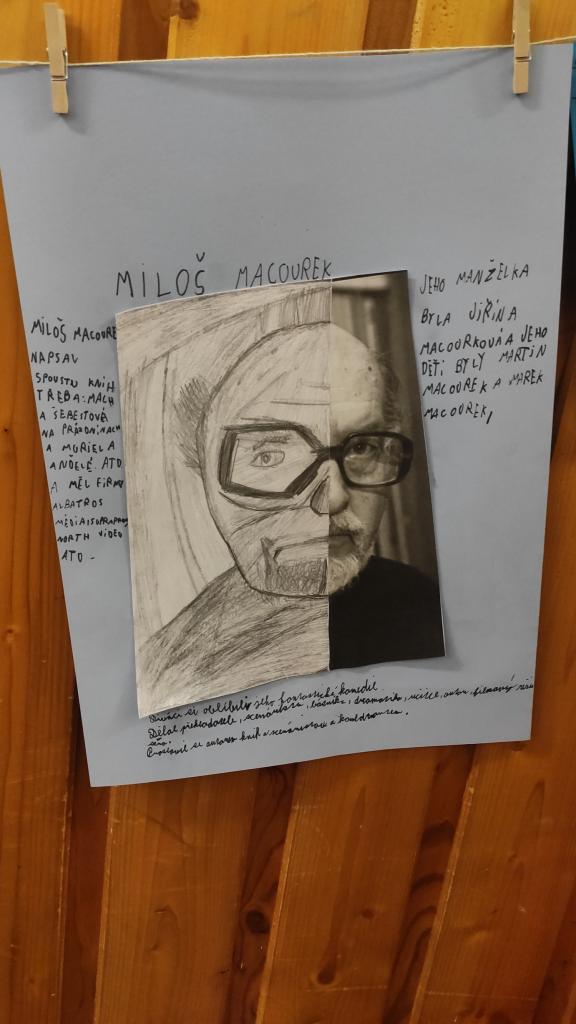 MILOŠ MACOUREK
MILOŠ MACOUREK
NAPSAL
SPOUSTU KNIH
TŘEBA: MACH
A ŠEBESTOVÁ
NA PRÁZDNINÁCH
A MURIEL A
ANDĚLÉ. ATD
A MĚL FIRMY
ALBATROS
MÉDIA
NORTH VIDEO
ATD.
JEHO MANŽELKA
BYLA JIŘINA
MACOURKOVÁ A JEHO
DĚTI BYLY MARTIN
MACOUREK A MAREK
MACOUREK,
Diváci si oblíbili jeho fantastické komedie.
Dělal překladatele, scénáristu, básníka, dramatika, učitele, autora, filmový
Proslavil se autorem knih a scénáristou a